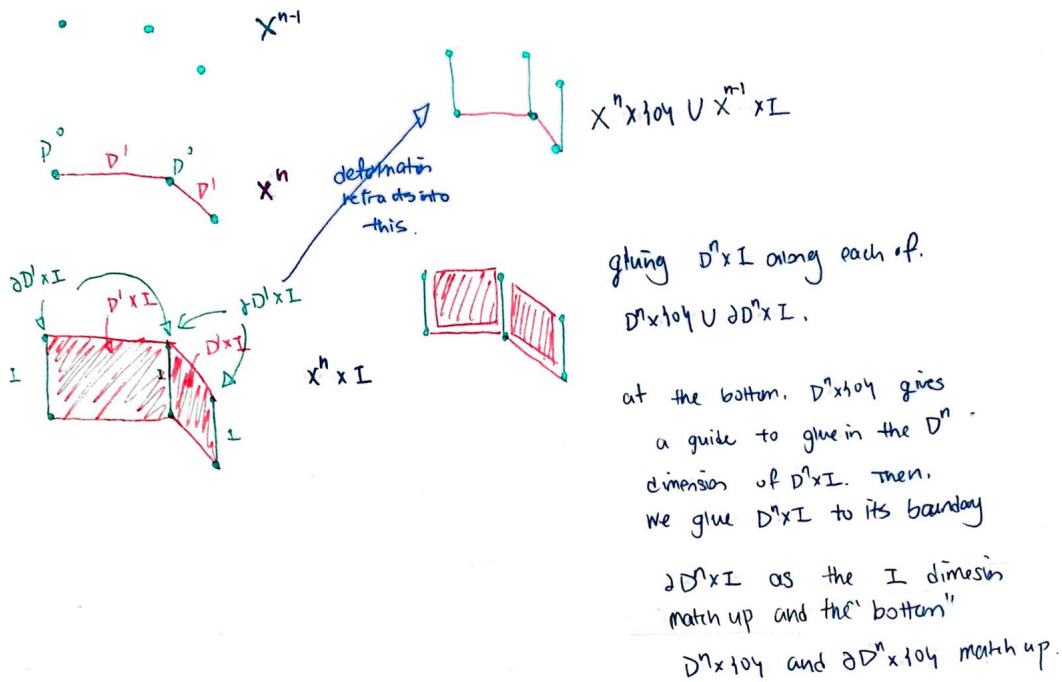 Xⁿ⁻¹
Xⁿ×{0} ∪ Xⁿ⁻¹×I
D⁰ D¹ D⁰
D¹
Xⁿ
deformation
retracts into
this.
∂D¹×I
D¹×I
∂D¹×I
D¹×I
I
I
I
Xⁿ×I
gluing Dⁿ×I along each of.
Dⁿ×{0} ∪ ∂Dⁿ×I.
at the bottom, Dⁿ×{0} gives
a guide to glue in the Dⁿ
dimension of Dⁿ×I. Then,
we glue Dⁿ×I to its boundary
∂Dⁿ×I as the I dimesin
match up and the "bottom"
Dⁿ×{0} and ∂Dⁿ×{0} match up.